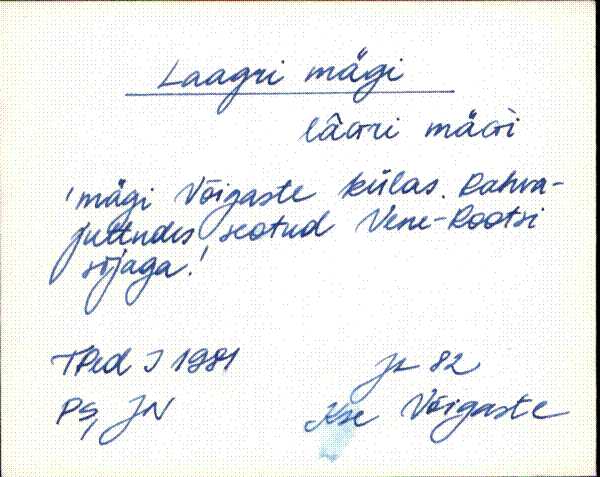 Laagri mägi
mägi Võigaste külas. Rahva-
juttudes seotud Vene-Rootsi
sõjaga.'
TPed I 1981
PS, JN
Kse Võigaste